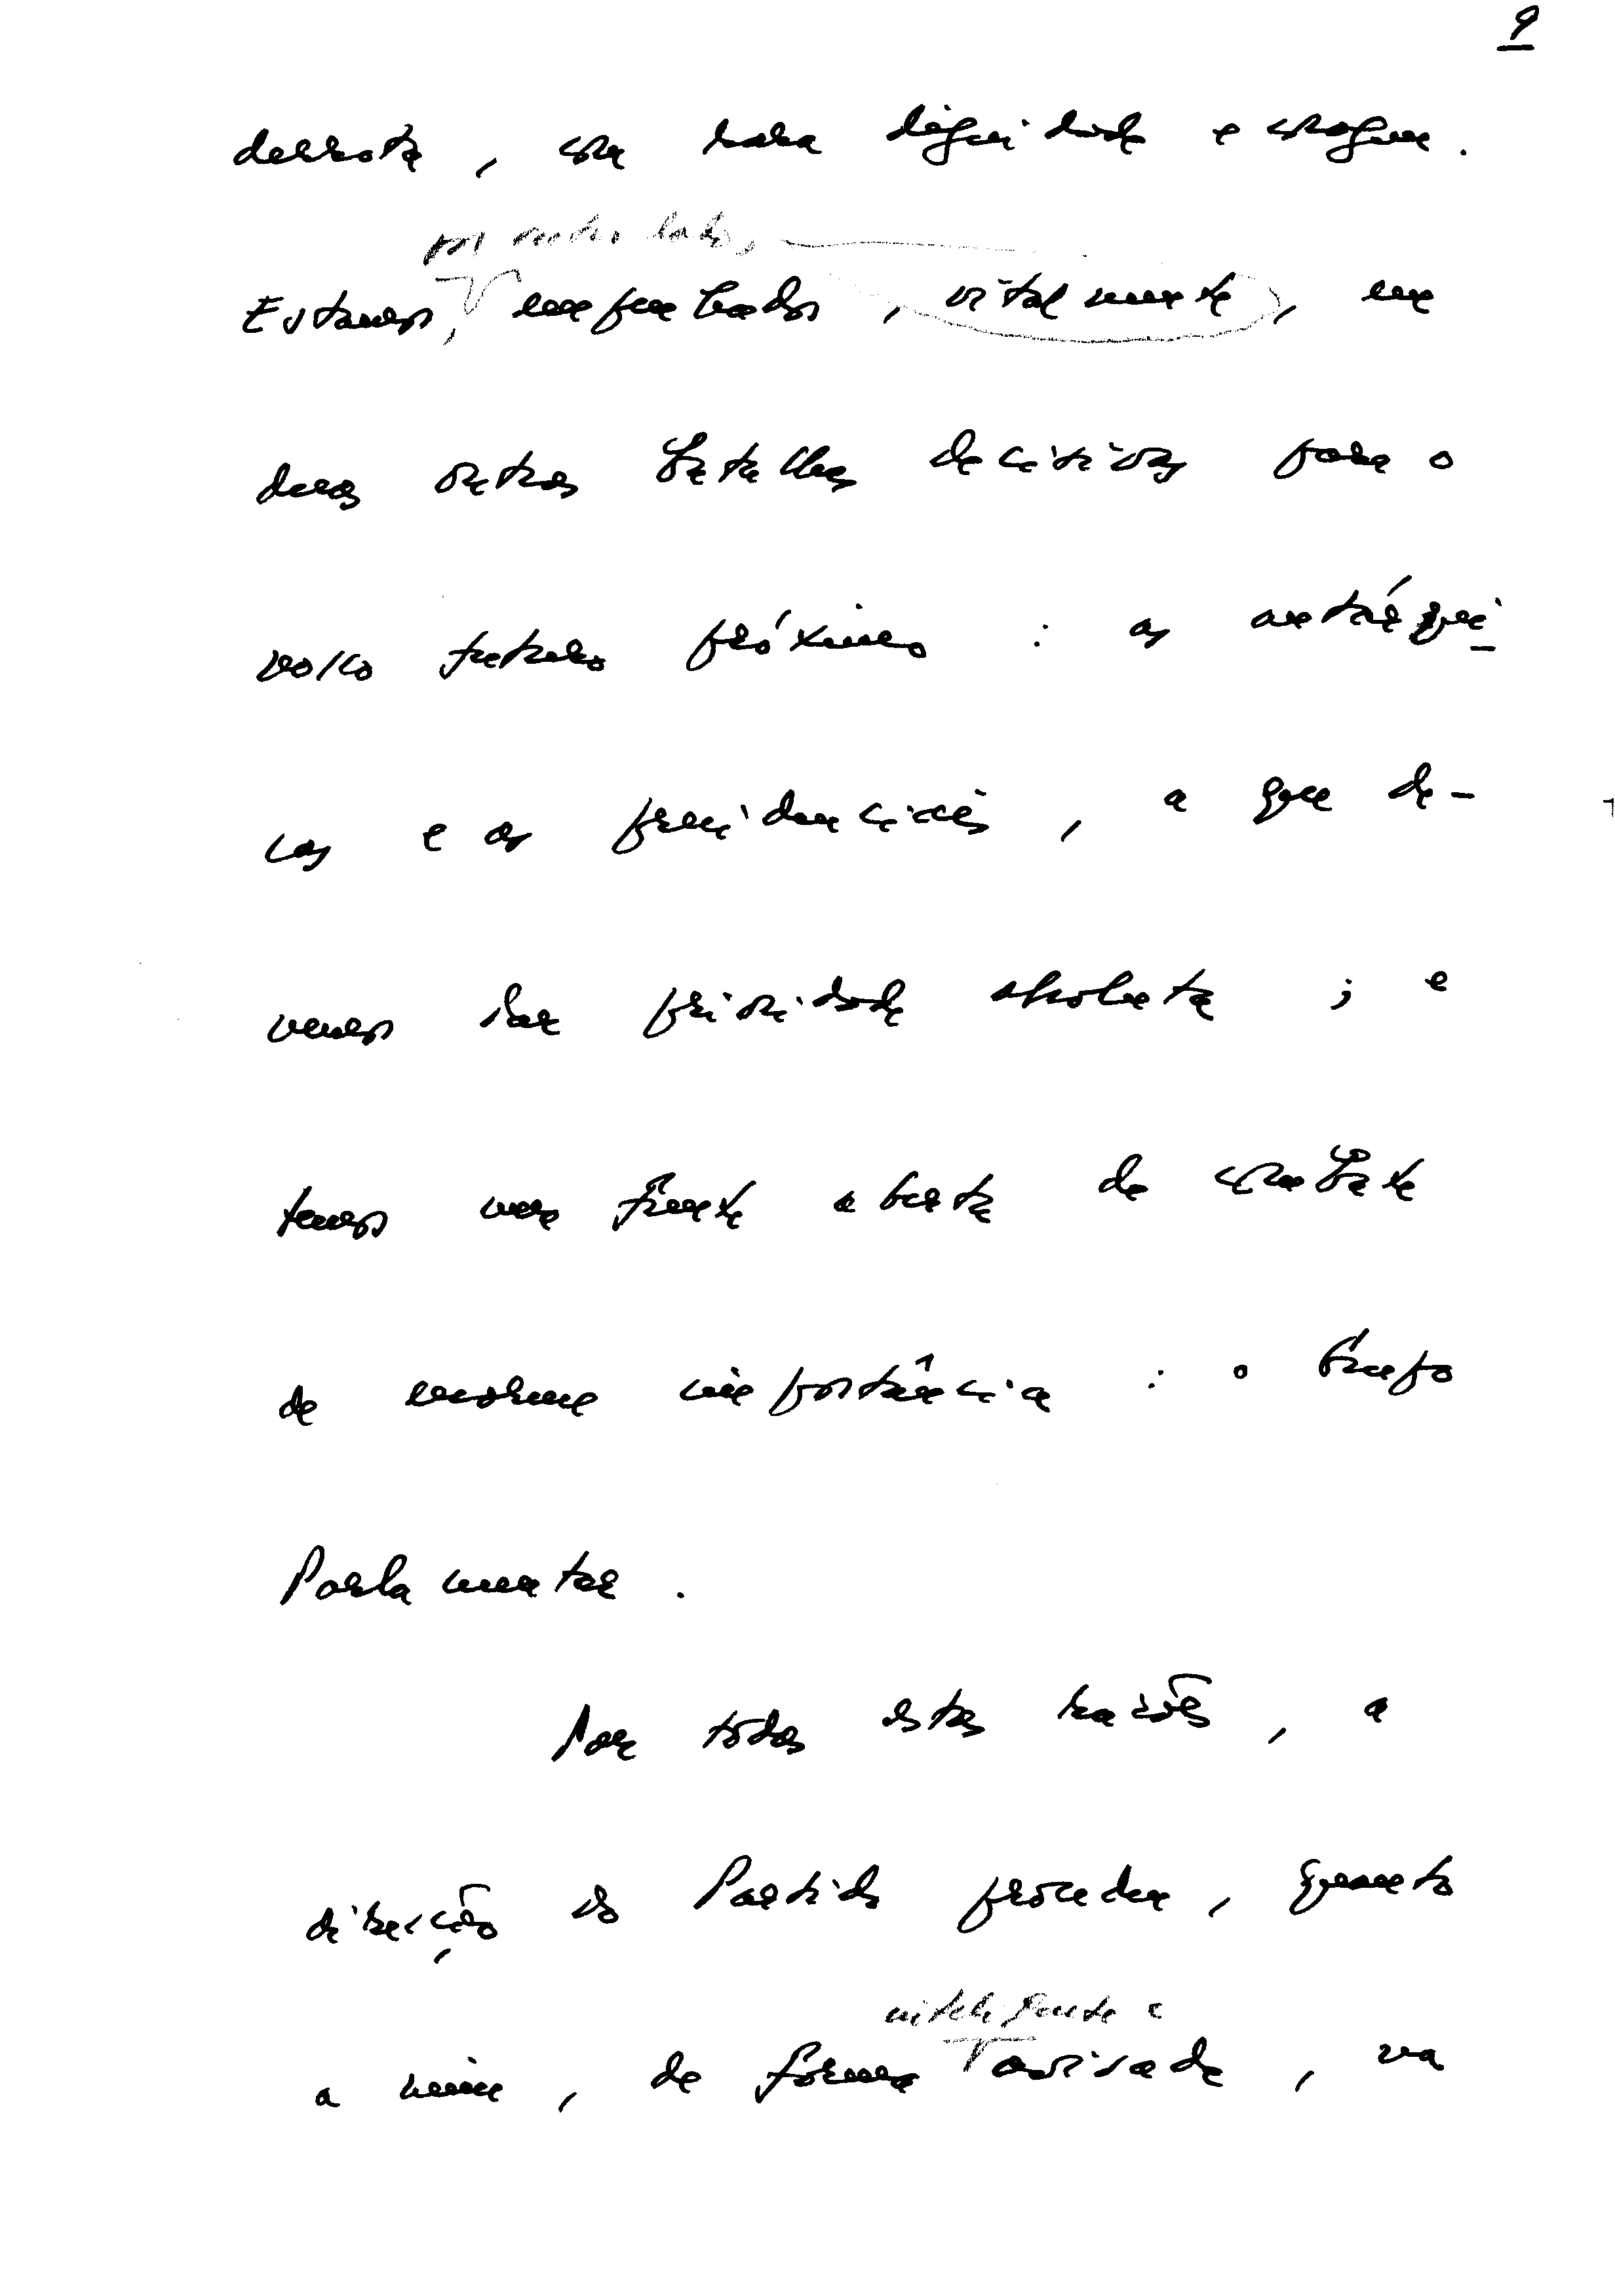 9
derrota, com rara dignidade e coragem.
por outro lado,
Estamos, empenhados, vitalmente, em
duas outras batalhas decisivas para o
nosso futuro próximo : as autárqui-
cas e as presidenciais, a que de-
vemos dar prioridade absoluta ; e
temos uma frente aberta de combate
de enorme importância : o Grupo
Parlamentar .
Por todas estas razões, a
direcção do Partido procedeu, quanto
inteligente e
a mim, de forma avisada, na